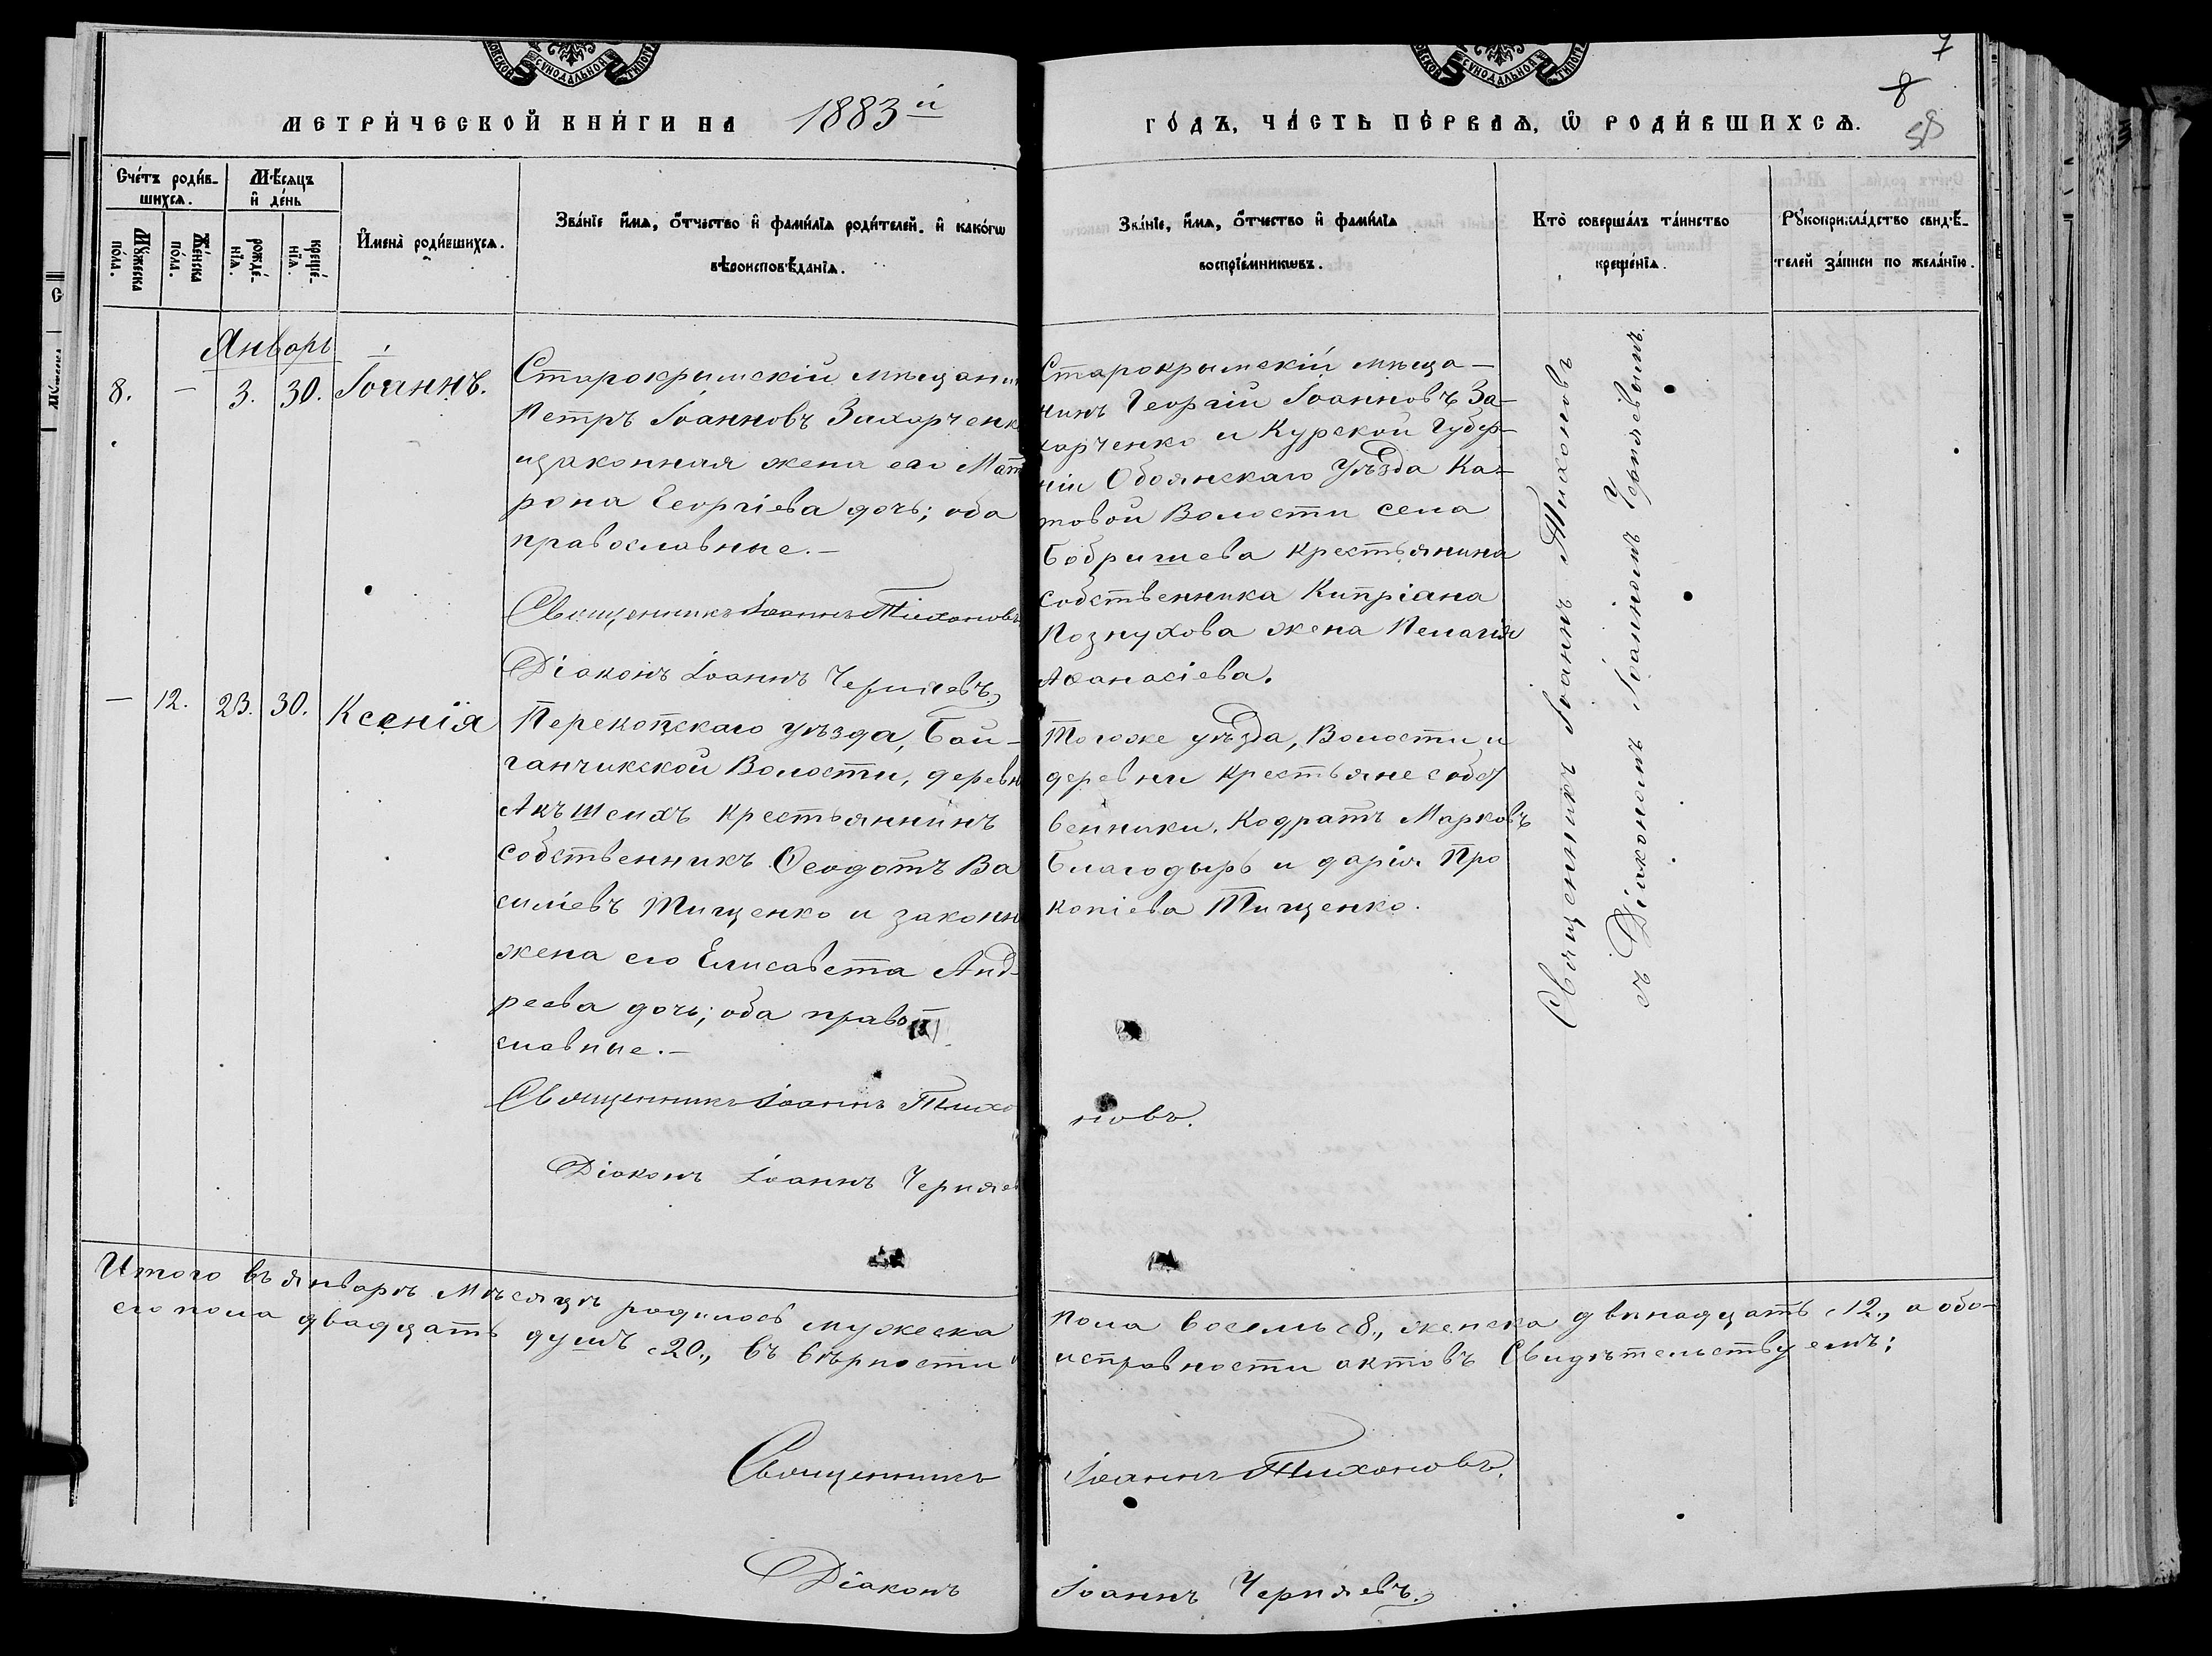 МЕТРИ́ЧЕСКОЙ КНИ́ГИ НА 1883й
ГО́ДЪ, ЧА́СТЬ ПЕ́РВАѦ, Ѡ РОДИ́ВШИХСѦ.
7
8
58
Сче́тъ роди́в-
шихсѧ.
Мѣ́сѧцъ
и҆ де́нь
Мꙋ́жеска
по́ла.
Же́нска
по́ла.
рожде́-
нїѧ.
креще́-
нїѧ.
И҆мена̀ роди́вшихсѧ.
Зва́нїе и҆́мѧ, ѻ҆́тчество и҆ фами́лїѧ роди́телей. и҆ како́гѡ
вѣроисповѣ́данїѧ.
Зва́нїе, и҆́мѧ, ѻ҆́тчество и҆ фами́лїѧ
воспрїе́мникѡвъ.
Кто̀ соверша́лъ та́инство
креще́нїѧ.
Рꙋкоприкла́дство свидѣ́-
телей за́писи по жела́нїю.
Январь
8. — 3. 30. Іоаннъ.
Старокрымскій мѣщанин
Петръ Іоанновъ Захарченк
изаконная жена его Мат
рона Георгіева дочь; оба
православные.—
Священникъ Іоаннъ Тихоновъ
Діаконъ Іоаннъ Черняевъ.
Старокрымскій мѣща—
нинъ Георгій Іоанновъ За-
харченко и Курской Губер-
ніи Обоянскаго Уѣзда Ка-
товой Волости села
Бобришева крестьянина
собственника Кипріана
Познухова жена Пелагія
Аѳанасіева.
Священникъ Іоаннъ Тихоновъ
съ Діакономъ Іоанномъ Черняевымъ.
— 12. 23. 30. Ксенія
Перекопскаго уѣзда, Бай-
ганчикской Волости, деревн
Акъ Шеихъ крестьяннинъ
собственникъ Ѳеодотъ Ва
силіевъ Тищенко и законн
жена его Елисавета Анд-
реева дочь; оба право
славные.—
Священникъ Іоаннъ Тихо
новъ.
Діаконъ Іоаннъ Черняев
Тогоже уѣзда, Волости и
деревни крестьяне собст
венники. Кодратъ Марковъ
Благодырь и дарія Про
копіева Тищенко.
Итого въ январѣ Мѣсяцѣ родилось мужеска пола восемь „8„, женска двѣнадцать „12„, а обо-
его пола двадцать душъ „20„, въ вѣрности и исправности актовъ Свидѣтельствуемъ:
Священникъ Іоаннъ Тихоновъ.
Діаконъ Іоаннъ Черняевъ.